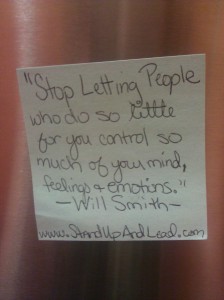 "Stop Letting People
who do so little
for you control so
much of your mind,
feelings & emotions."
-Will Smith-
www.StandUpAndLead.com